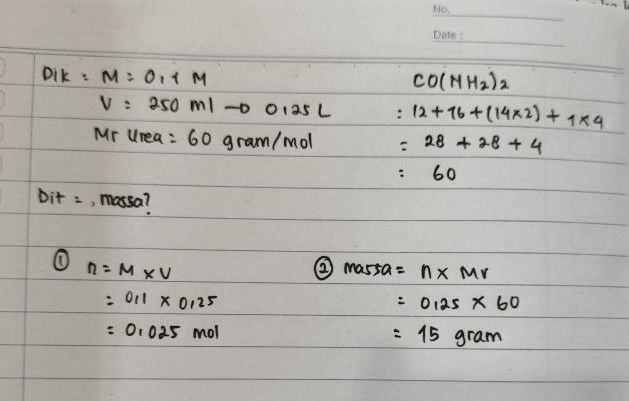 No.
Date :
Dik : M = 0,1 M
V : 250 ml → 0,25 L
Mr Urea = 60 gram/mol
CO(NH2)2
: 12 + 16 + (14×2) + 1×4
= 28 + 28 + 4
: 60
Dit = , massa?
① n = M × V
= 0,1 × 0,25
= 0,025 mol
② massa = n × Mr
= 0,25 × 60
= 15 gram